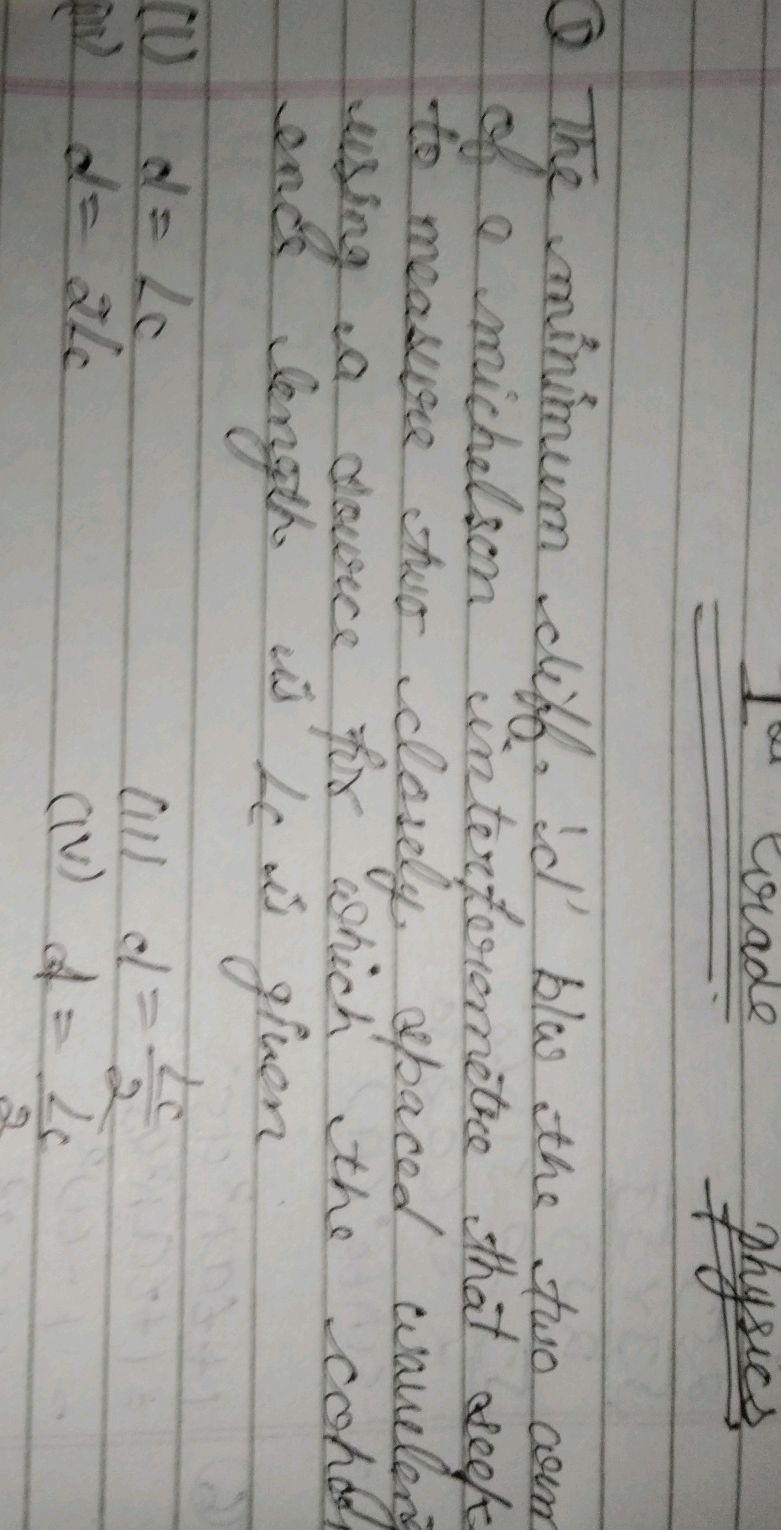 Grade Physics
① The minimum diff. 'd' b/w the two arm
of a michelson interferometre that seek
to measure two closely spaced wavelen
using a source for which the coher
ence length is Lc is given
(I) d = Lc (III) d = Lc/2
d = 2Lc (IV) d = Lc/2